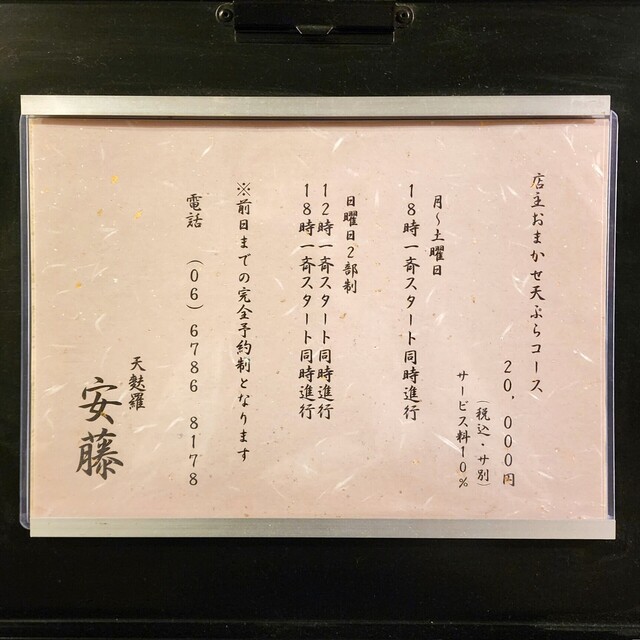 店主おまかせ天ぷらコース
20,000円
(税込・サ別)
サービス料10%
月〜土曜日
18時一斉スタート同時進行
日曜日2部制
12時一斉スタート同時進行
18時一斉スタート同時進行
※前日までの完全予約制となります
電話 (06)6786 8178
天麩羅
安藤